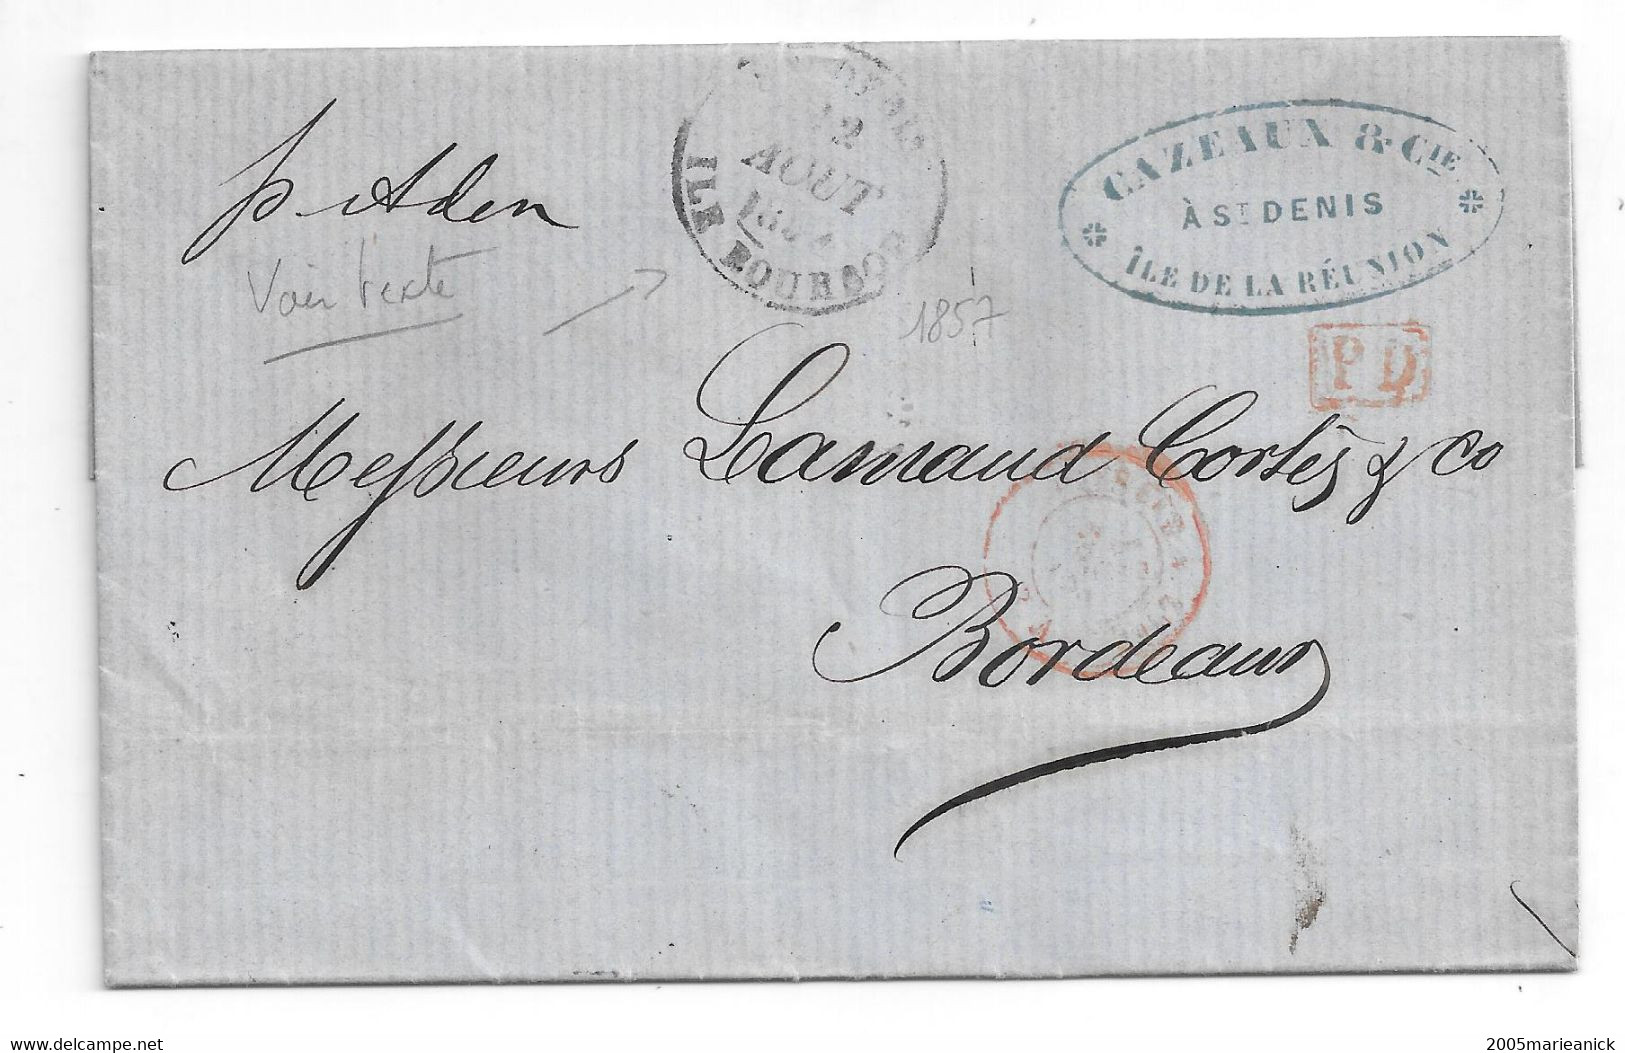 p. Aden
Voir texte
12
AOUT
ILE BOURBON
1857
CAZEAUX & CIE
À ST DENIS
ÎLE DE LA RÉUNION
PD
Messieurs Lamaud Cortès & Co
Bordeaux
www.delcampe.net
2005marieanick